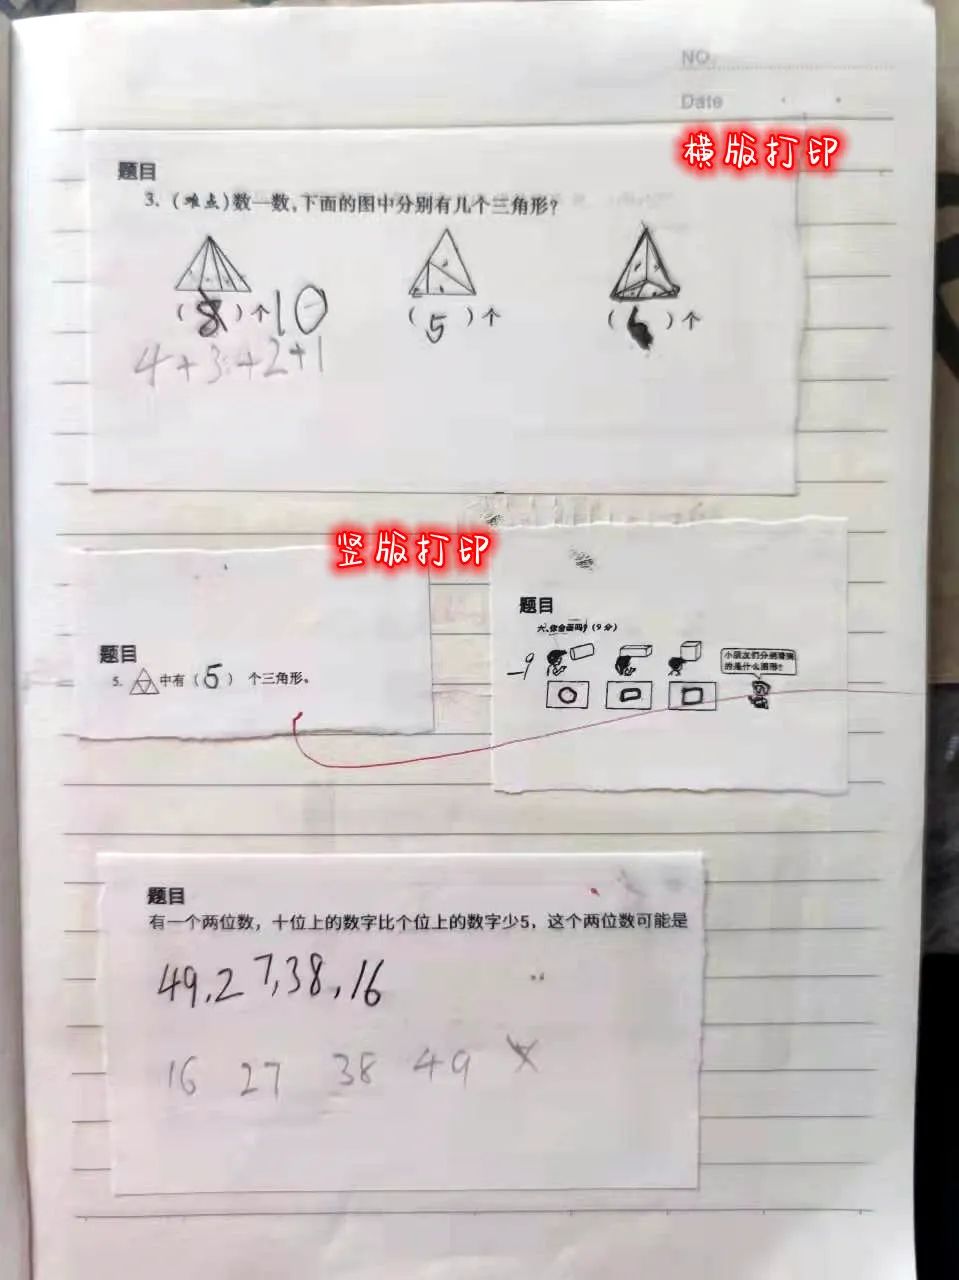 NO.
Date
横版打印
题目
3. (难点)数一数,下面的图中分别有几个三角形?
(8)个10 (5)个 (6)个
4+3+2+1
竖版打印
题目
5. 中有(5) 个三角形。
题目
六、你会画吗?(9分)
-9
小朋友们分别画的
的是什么图形?
题目
有一个两位数,十位上的数字比个位上的数字少5,这个两位数可能是
49,27,38,16
16 27 38 49